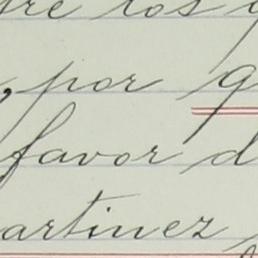 tre los q
, por g
favor d
artinez